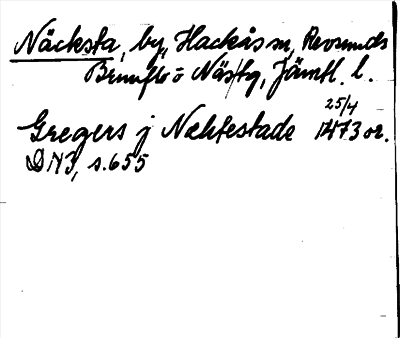 Näcksta, by, Hackås sn, Revsunds
Brunflo o Näs tg, Jämtl. l.
25/4
Gregers j Næhtestade 1473 or.
DN 3, s. 655